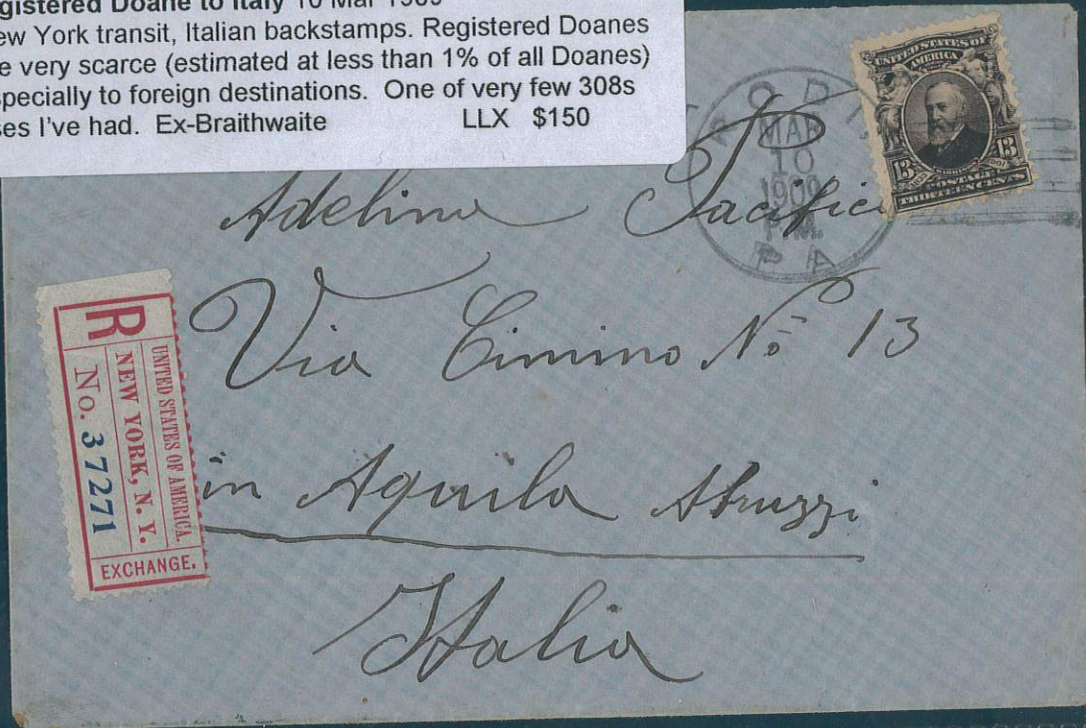 gistered Doane to Italy 10 Mar 1909
ew York transit, Italian backstamps. Registered Doanes
e very scarce (estimated at less than 1% of all Doanes)
specially to foreign destinations. One of very few 308s
ses I've had. Ex-Braithwaite LLX $150
UNITED STATES OF
AMERICA
HARRISON
13 13
POSTAGE
THIRTEEN CENTS
MAR
10
1909
P.M.
PA
Adelina Pacifico
Via Cimino No 13
in Aquila Abruzzi
Italia
R
UNITED STATES OF AMERICA.
NEW YORK, N. Y.
No. 37271
EXCHANGE.